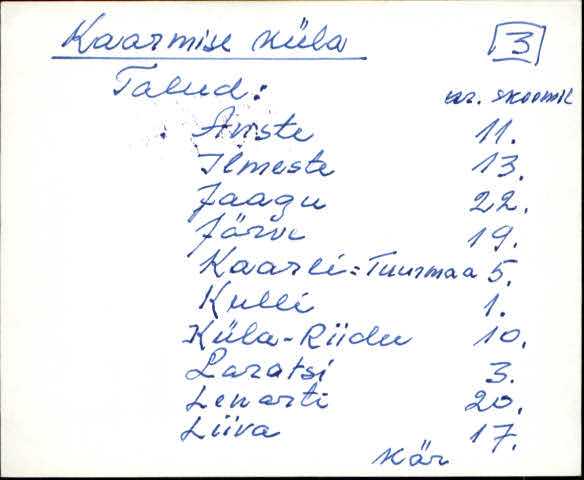 Kaarmise küla 3
Talud: nr. skeemil
Ariste 11.
Ilmeste 13.
Jaagu 22.
Järve 19.
Kaarli = Tuurmaa 5.
Kulli 1.
Küla-Riidu 10.
Laratsi 3.
Lenarti 20.
Liiva 17.
Kär